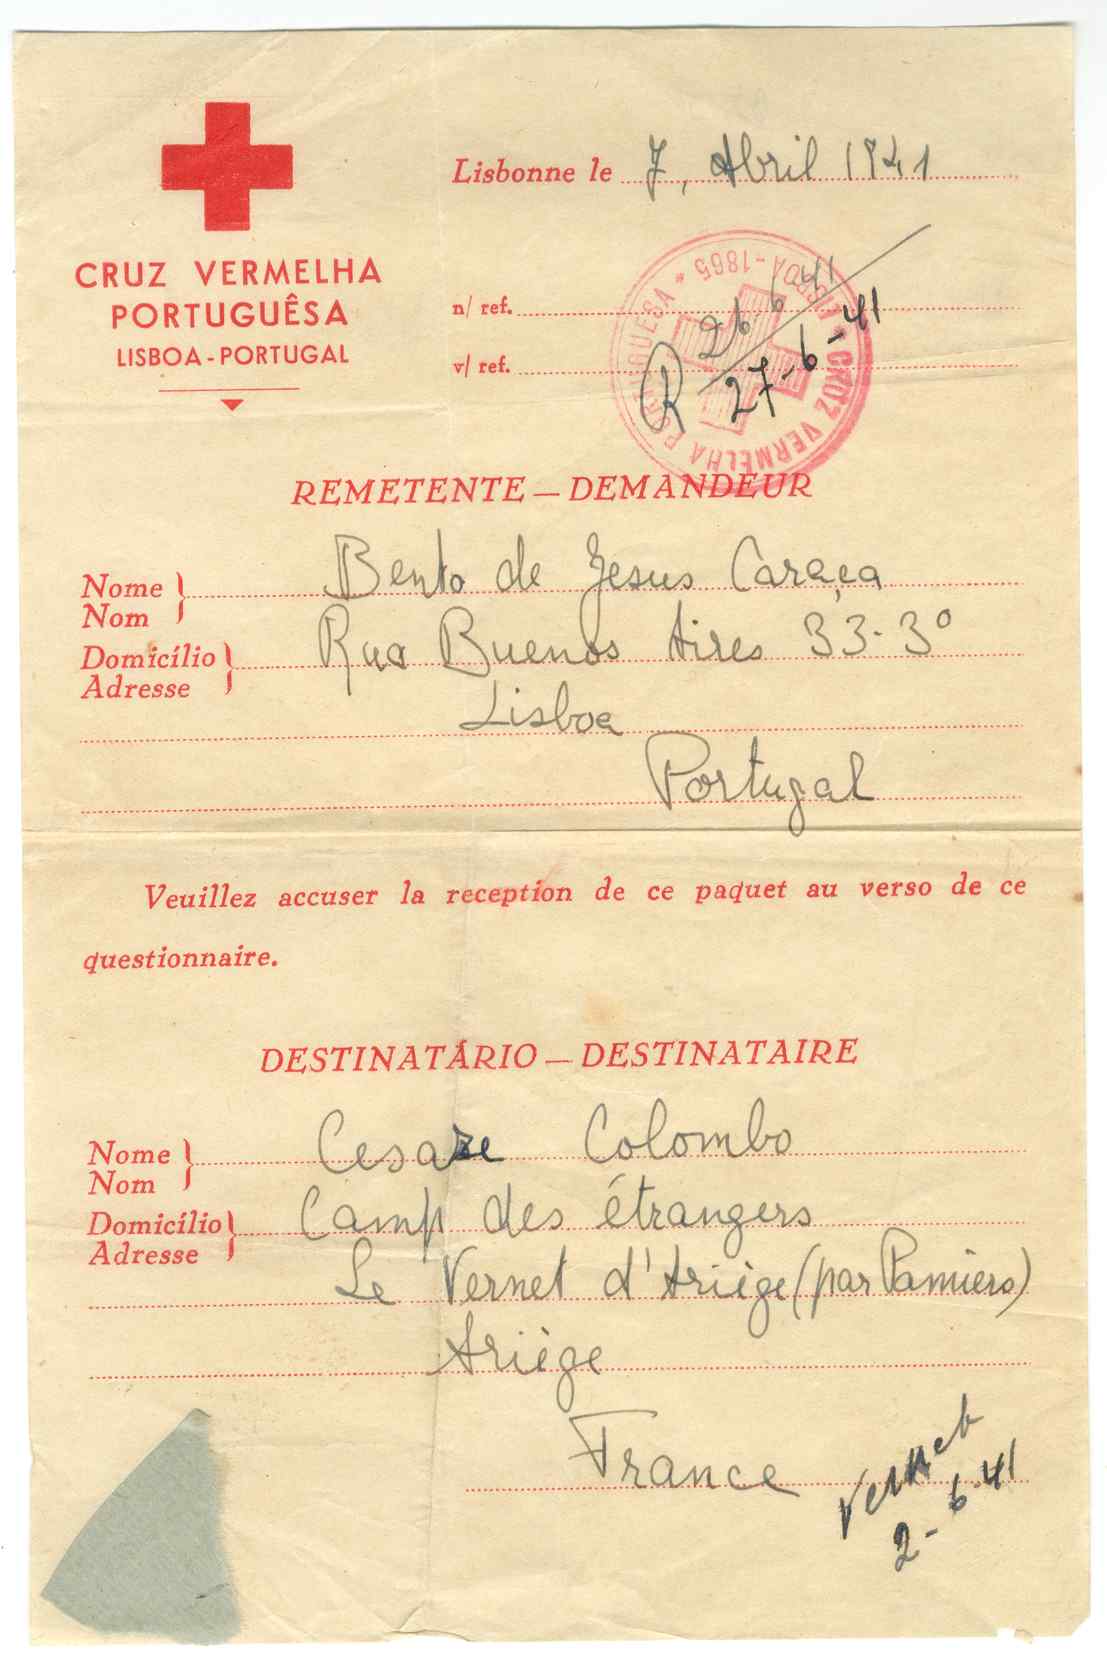 CRUZ VERMELHA
PORTUGUÊSA
LISBOA - PORTUGAL
Lisbonne le 7, Abril 1941
n/ ref. 26 6 41
v/ ref. R 27-6-41
CRUZ VERMELHA PORTUGUESA * LISBOA - 1865 *
REMETENTE — DEMANDEUR
Nome } Bento de Jesus Caraça
Nom
Domicílio } Rua Buenos Aires 33-3º
Adresse
Lisboa
Portugal
Veuillez accuser la reception de ce paquet au verso de ce
questionnaire.
DESTINATÁRIO — DESTINATAIRE
Nome } Cesare Colombo
Nom
Domicílio } Camp des étrangers
Adresse
Le Vernet d'Ariège (par Pamiers)
Ariège
France
Vernet
2-6-41